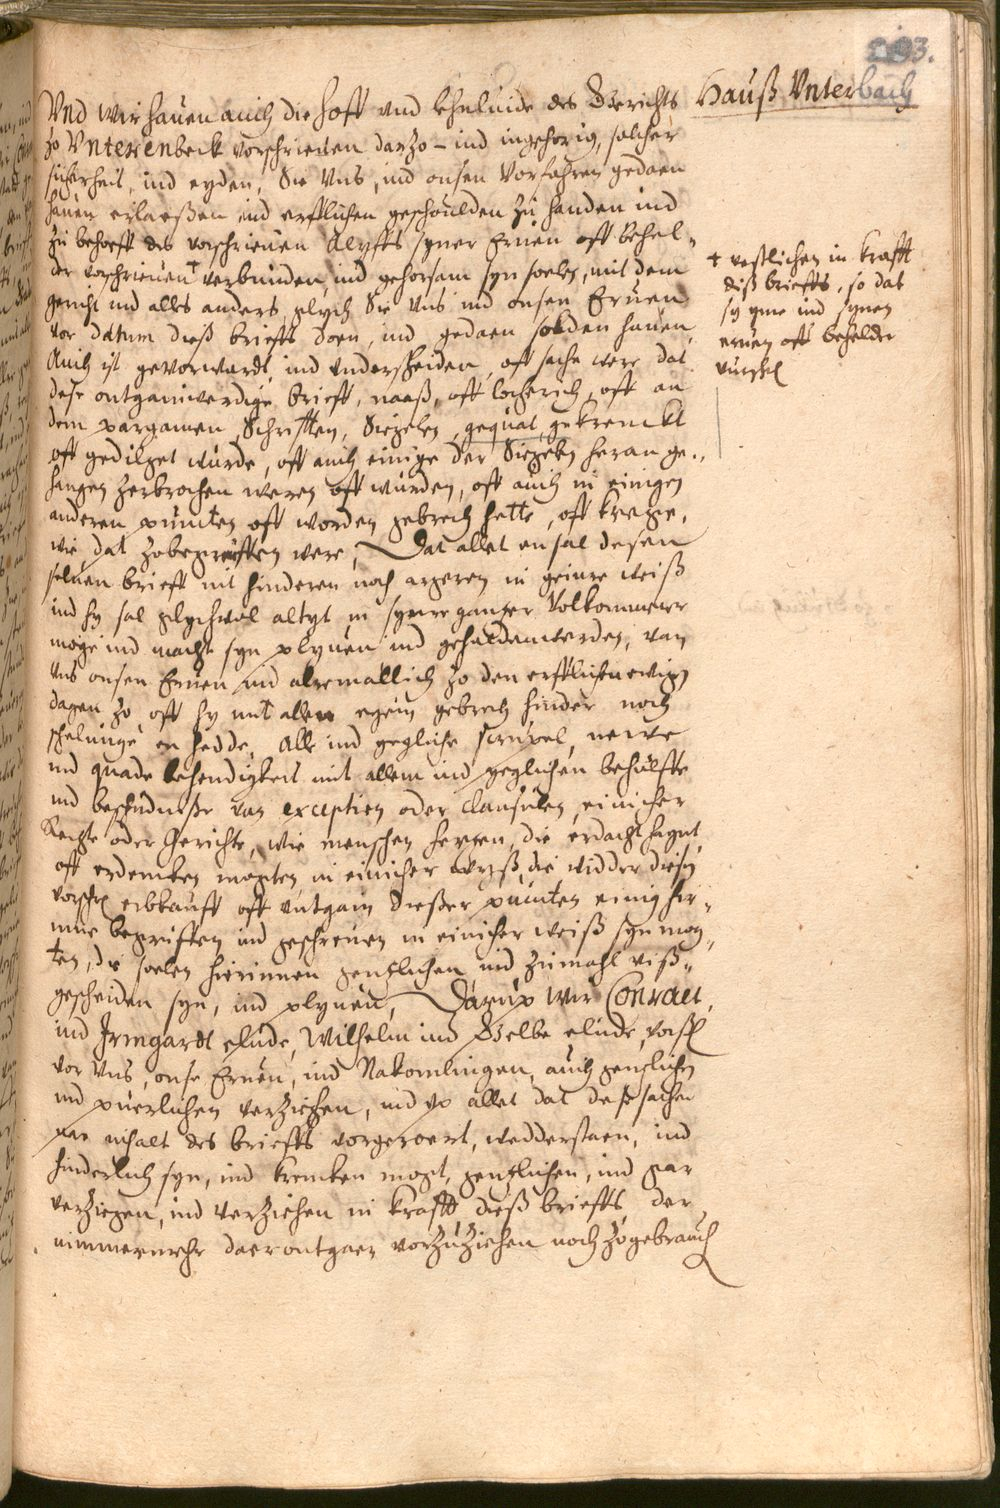 293.
Hauß Vnterbach
Vnd wir hauen auch die hofft vnd lehnluide des Gerichts
zo Vnterenbeck vorschrieuen darzo ind ingehorig, solcher
sicherheit, ind eyden, die Vns, ind onsen Vorfahren gedaen
hauen erlaeßen ind erfflichen geschoulden zu handen ind
zu behoeff des vorschrieuen Alyffs syner Eruen offt behel-
der vorschrieuen † verbunden, ind gehorsam syn soelen, mit dem
gericht ind alles anders, glych sie Vns ind onsen Eruen
vor datum dieß brieffs doen, ind gedaen solden hauen,
Auch ist gevorwardt, ind vnderscheiden, offt sache were dat
dese ontgainwerdige brieff, naaß, offt locherich, offt an
dem pargamen, Schrifften, Siegelen, gequat, gekrenckt
offt gedilget wurde, offt auch einige der Siegelen heran ge-
hangen zerbrochen weren offt wurden, offt auch in einigen
anderen puncten offt worden gebrech hette, offt kregge,
wie dat zobegriffen were, Dat allet en sal desen
seluen brieff nit hinderen noch argeren in geinre weiß
ind hy sal glychwol altyt in synre gantzer Volkommenre
moge ind macht syn plyuen ind gehaldenwerden, van
Vns onsen Eruen ind alremallich zo den erfflichen ewigen
dagen zo, offt hy mit allen egein gebrech hinder noch
schelunge en hedde, Alle ind yegliche scrupel, newe
ind quade behendigkeit mit allem ind yeglichen behulffe
ind beschudnuße van exceptien oder clausulen, einicher
Rechte oder Gerichte, wie menschen hertzen, die erdacht haynt,
offt erdencken mogten in einicher wyß die widder diesen
vorschr. erbkauff offt entgain dießer puncten einig hir-
inne begriffen ind geschreuen in einicher weiß syn mog-
ten, die soelen hierinnen gentzlichen ind zumahl viß-
gescheiden syn, ind plyuen, Darup wir Conraet,
ind Irmgardt elude, Wilhelm ind Belbe elude, vorschr.
vor Vns, onse Eruen, ind Nakomlingen, auch gentzlichen
ind puerlichen verziehen, ind vp allet dat dese sachen
nae inhalt des brieffs vorgeroert, wedderstaen, ind
hinderlich syn, ind krencken mogt, gentzlichen, ind gar
verziegen, ind verziehen in krafft dieß brieffs der
nimmermehr daer ontgaen vorzuziehen noch zogebrauch
† vestlichen in krafft
diß brieffs, so dat
sy yme ind synen
eruen offt behelder
vurschr.